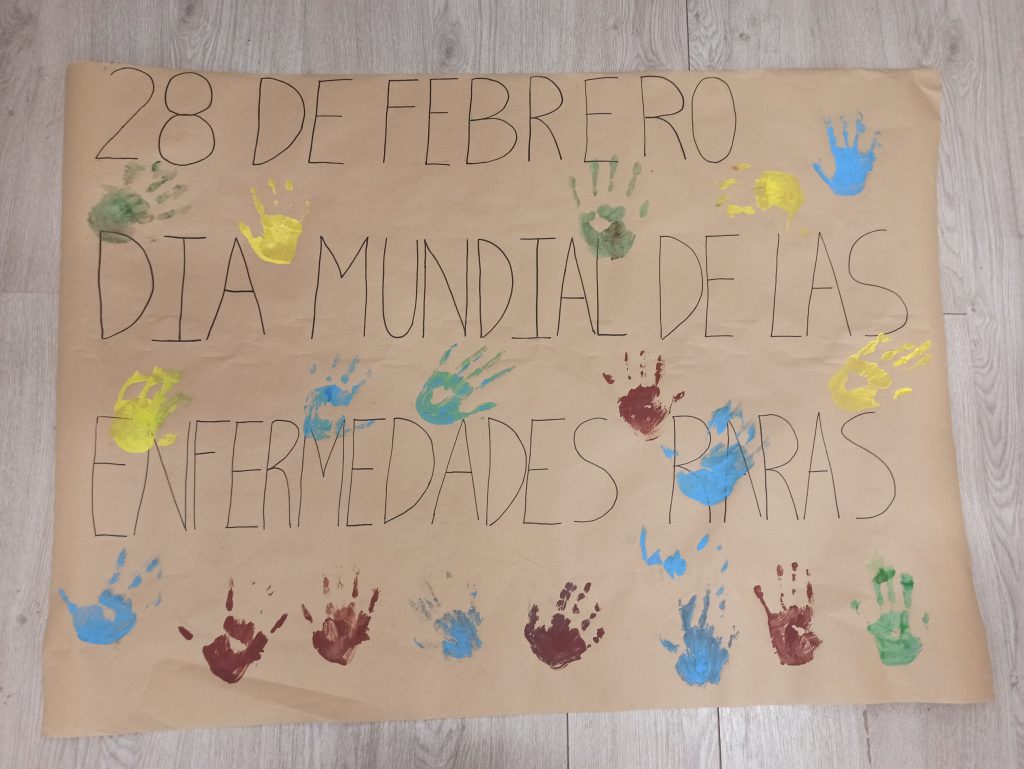 28 DE FEBRERO
DIA MUNDIAL DE LAS
ENFERMEDADES RARAS